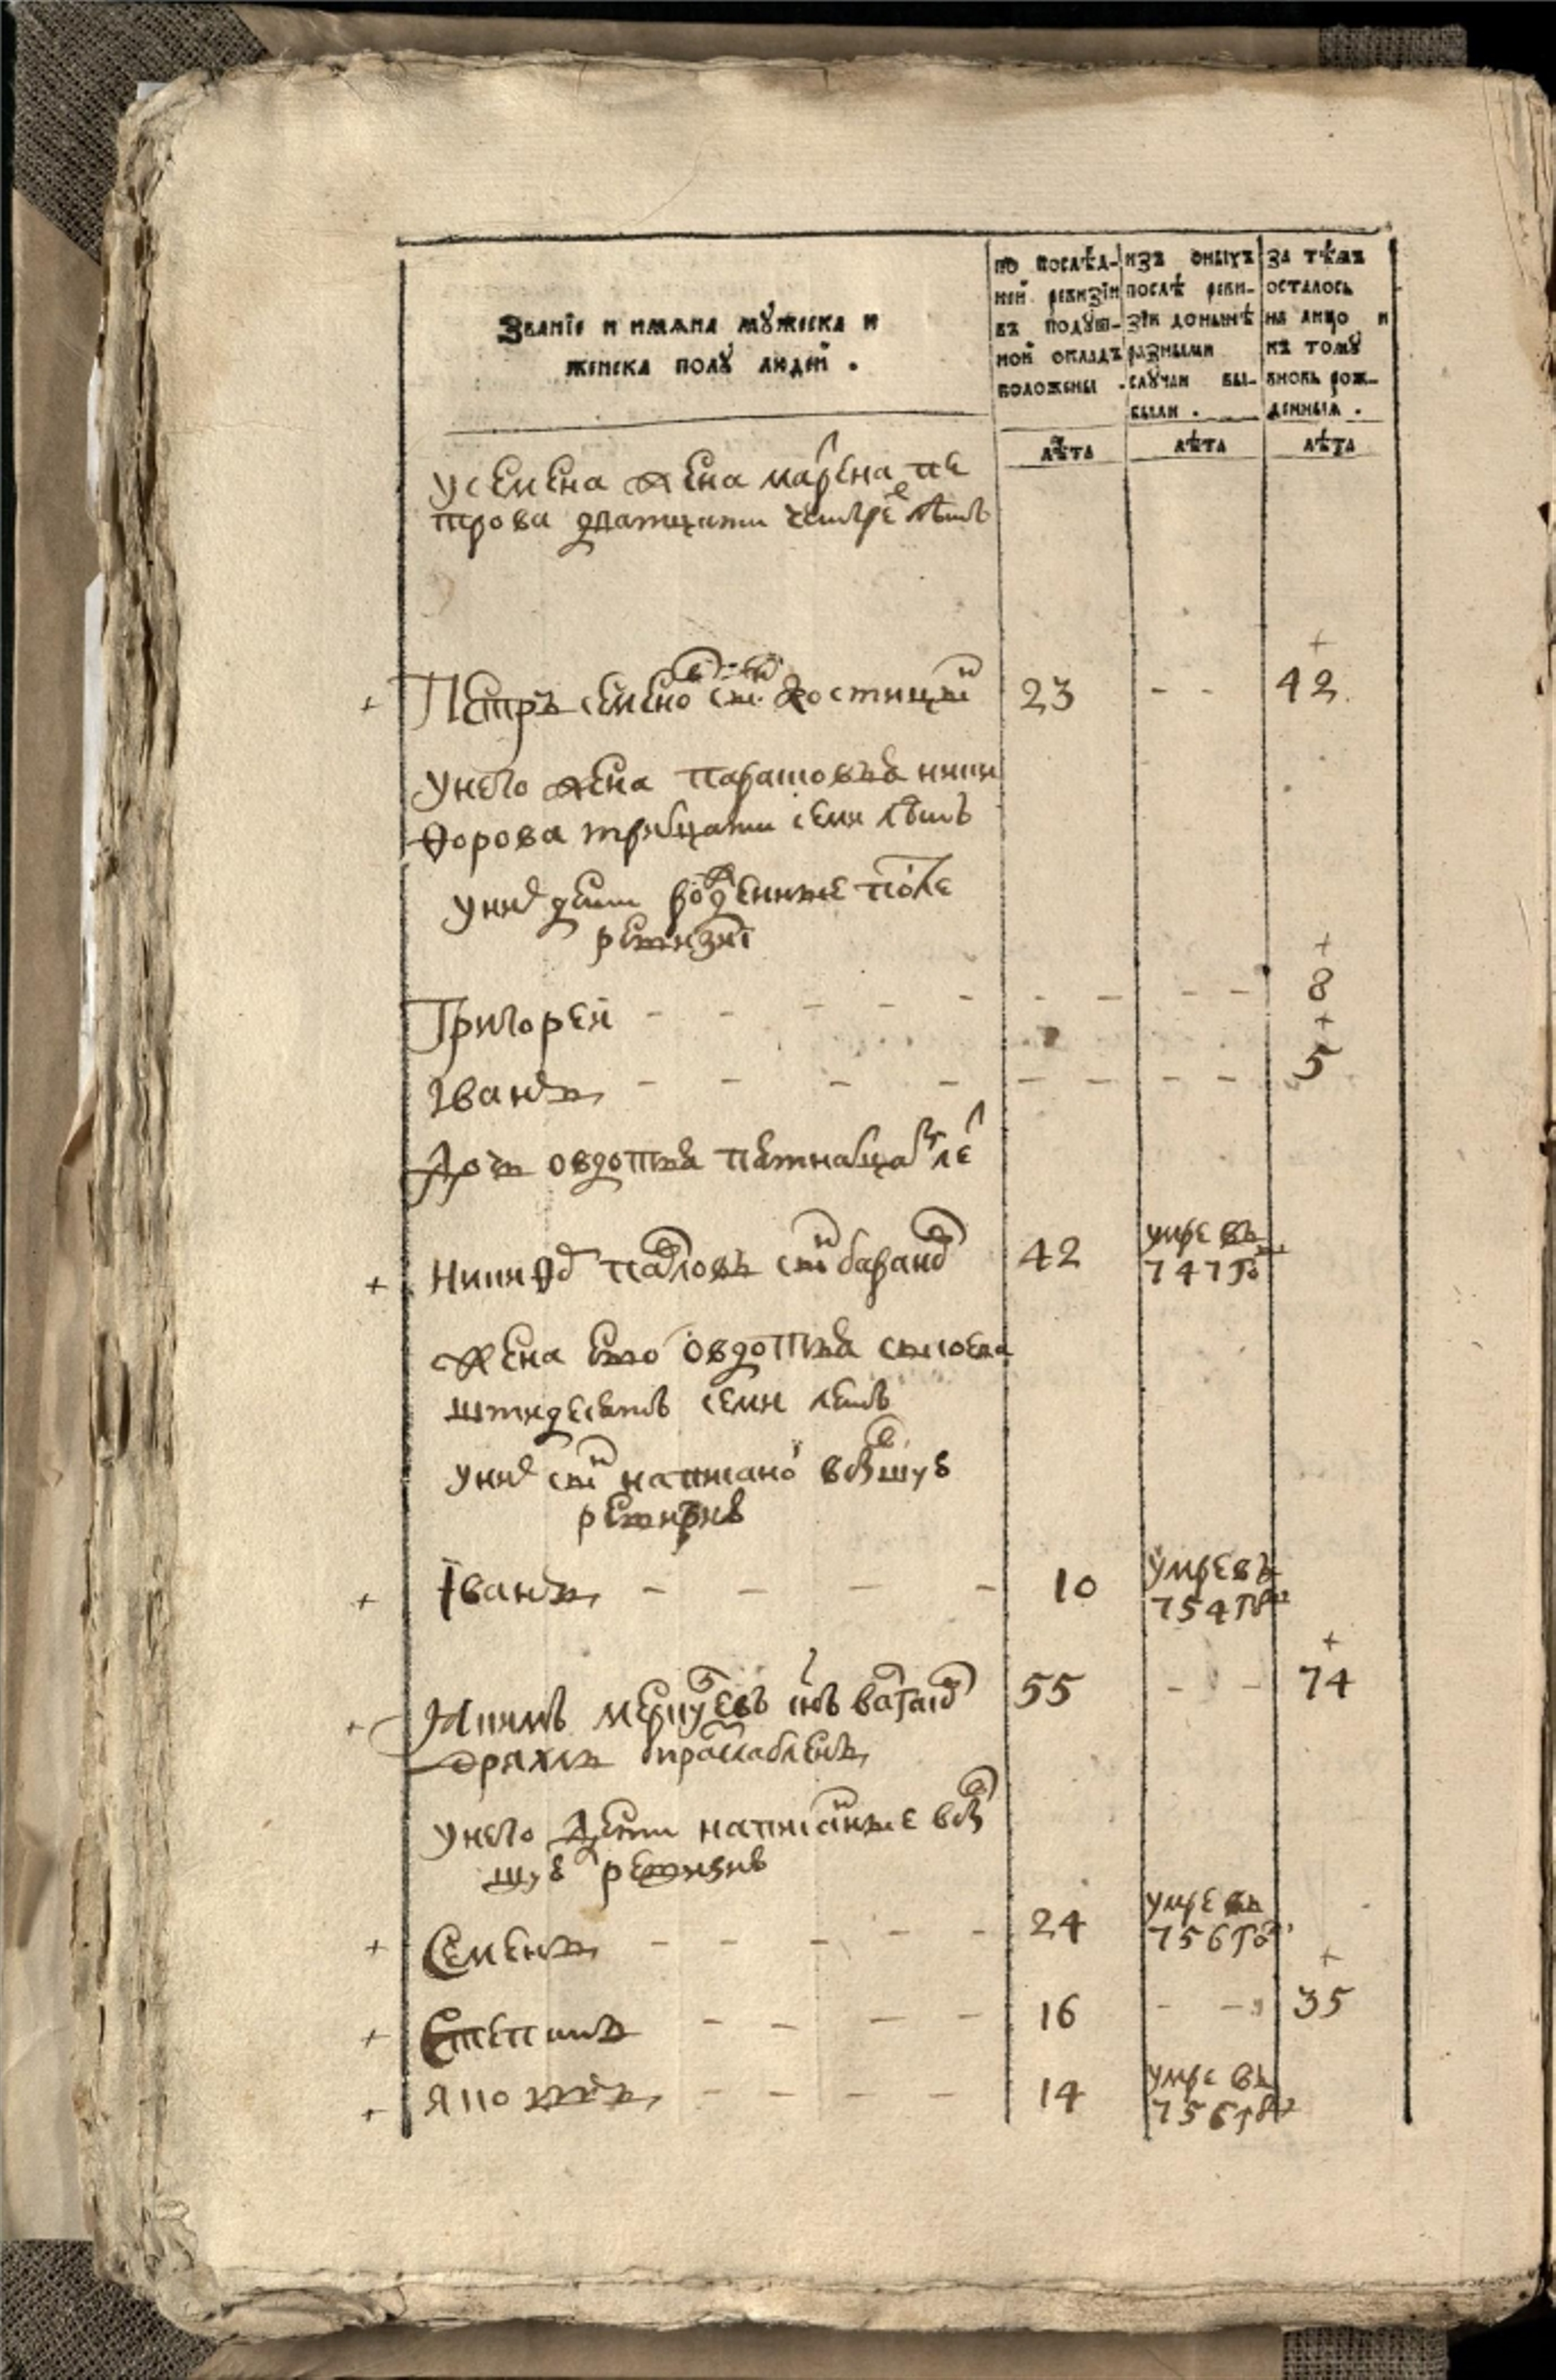 Званїе и имѧна мꙋжеска и
женска полꙋ людей .
по послѣд-
ней ревизїи
въ подуш-
ной окладъ
положены .
изъ оныхъ
послѣ реви-
зїи донынѣ
разными
случаи вы-
были .
за тѣмъ
осталось
на лицо и
къ томꙋ
вновь рож-
денныя .
лѣта лѣта лѣта
у семена жена марена пе
трова дватцати четыре лѣтъ
+ Петръ семенов сынъ 23 - - + 42
у него жена ники
форова тритцати семи лѣтъ
у них дети рожденные после
ревизиі
Григорей - - - - - - - - - + 8
Іванъ - - - - - - - - + 5
Дочь овдотья пятнатцат лет
+ Никифор павловъ сынъ 42 умре въ
747 го
жена ево овдотья сысоева
штидесятъ семи летъ
у них сынъ написаной в бывшую
ревизию
+ Іванъ - - - - 10 умре въ
754 го
+ сынъ 55 - - + 74
дряхлъ и раслабленъ
у него дети написанные в быв
шую ревизию
+ Семенъ - - - - - 24 умре въ
756 го
+ Степанъ - - - - 16 - - + 35
+ - - - - 14 умре въ
756 го